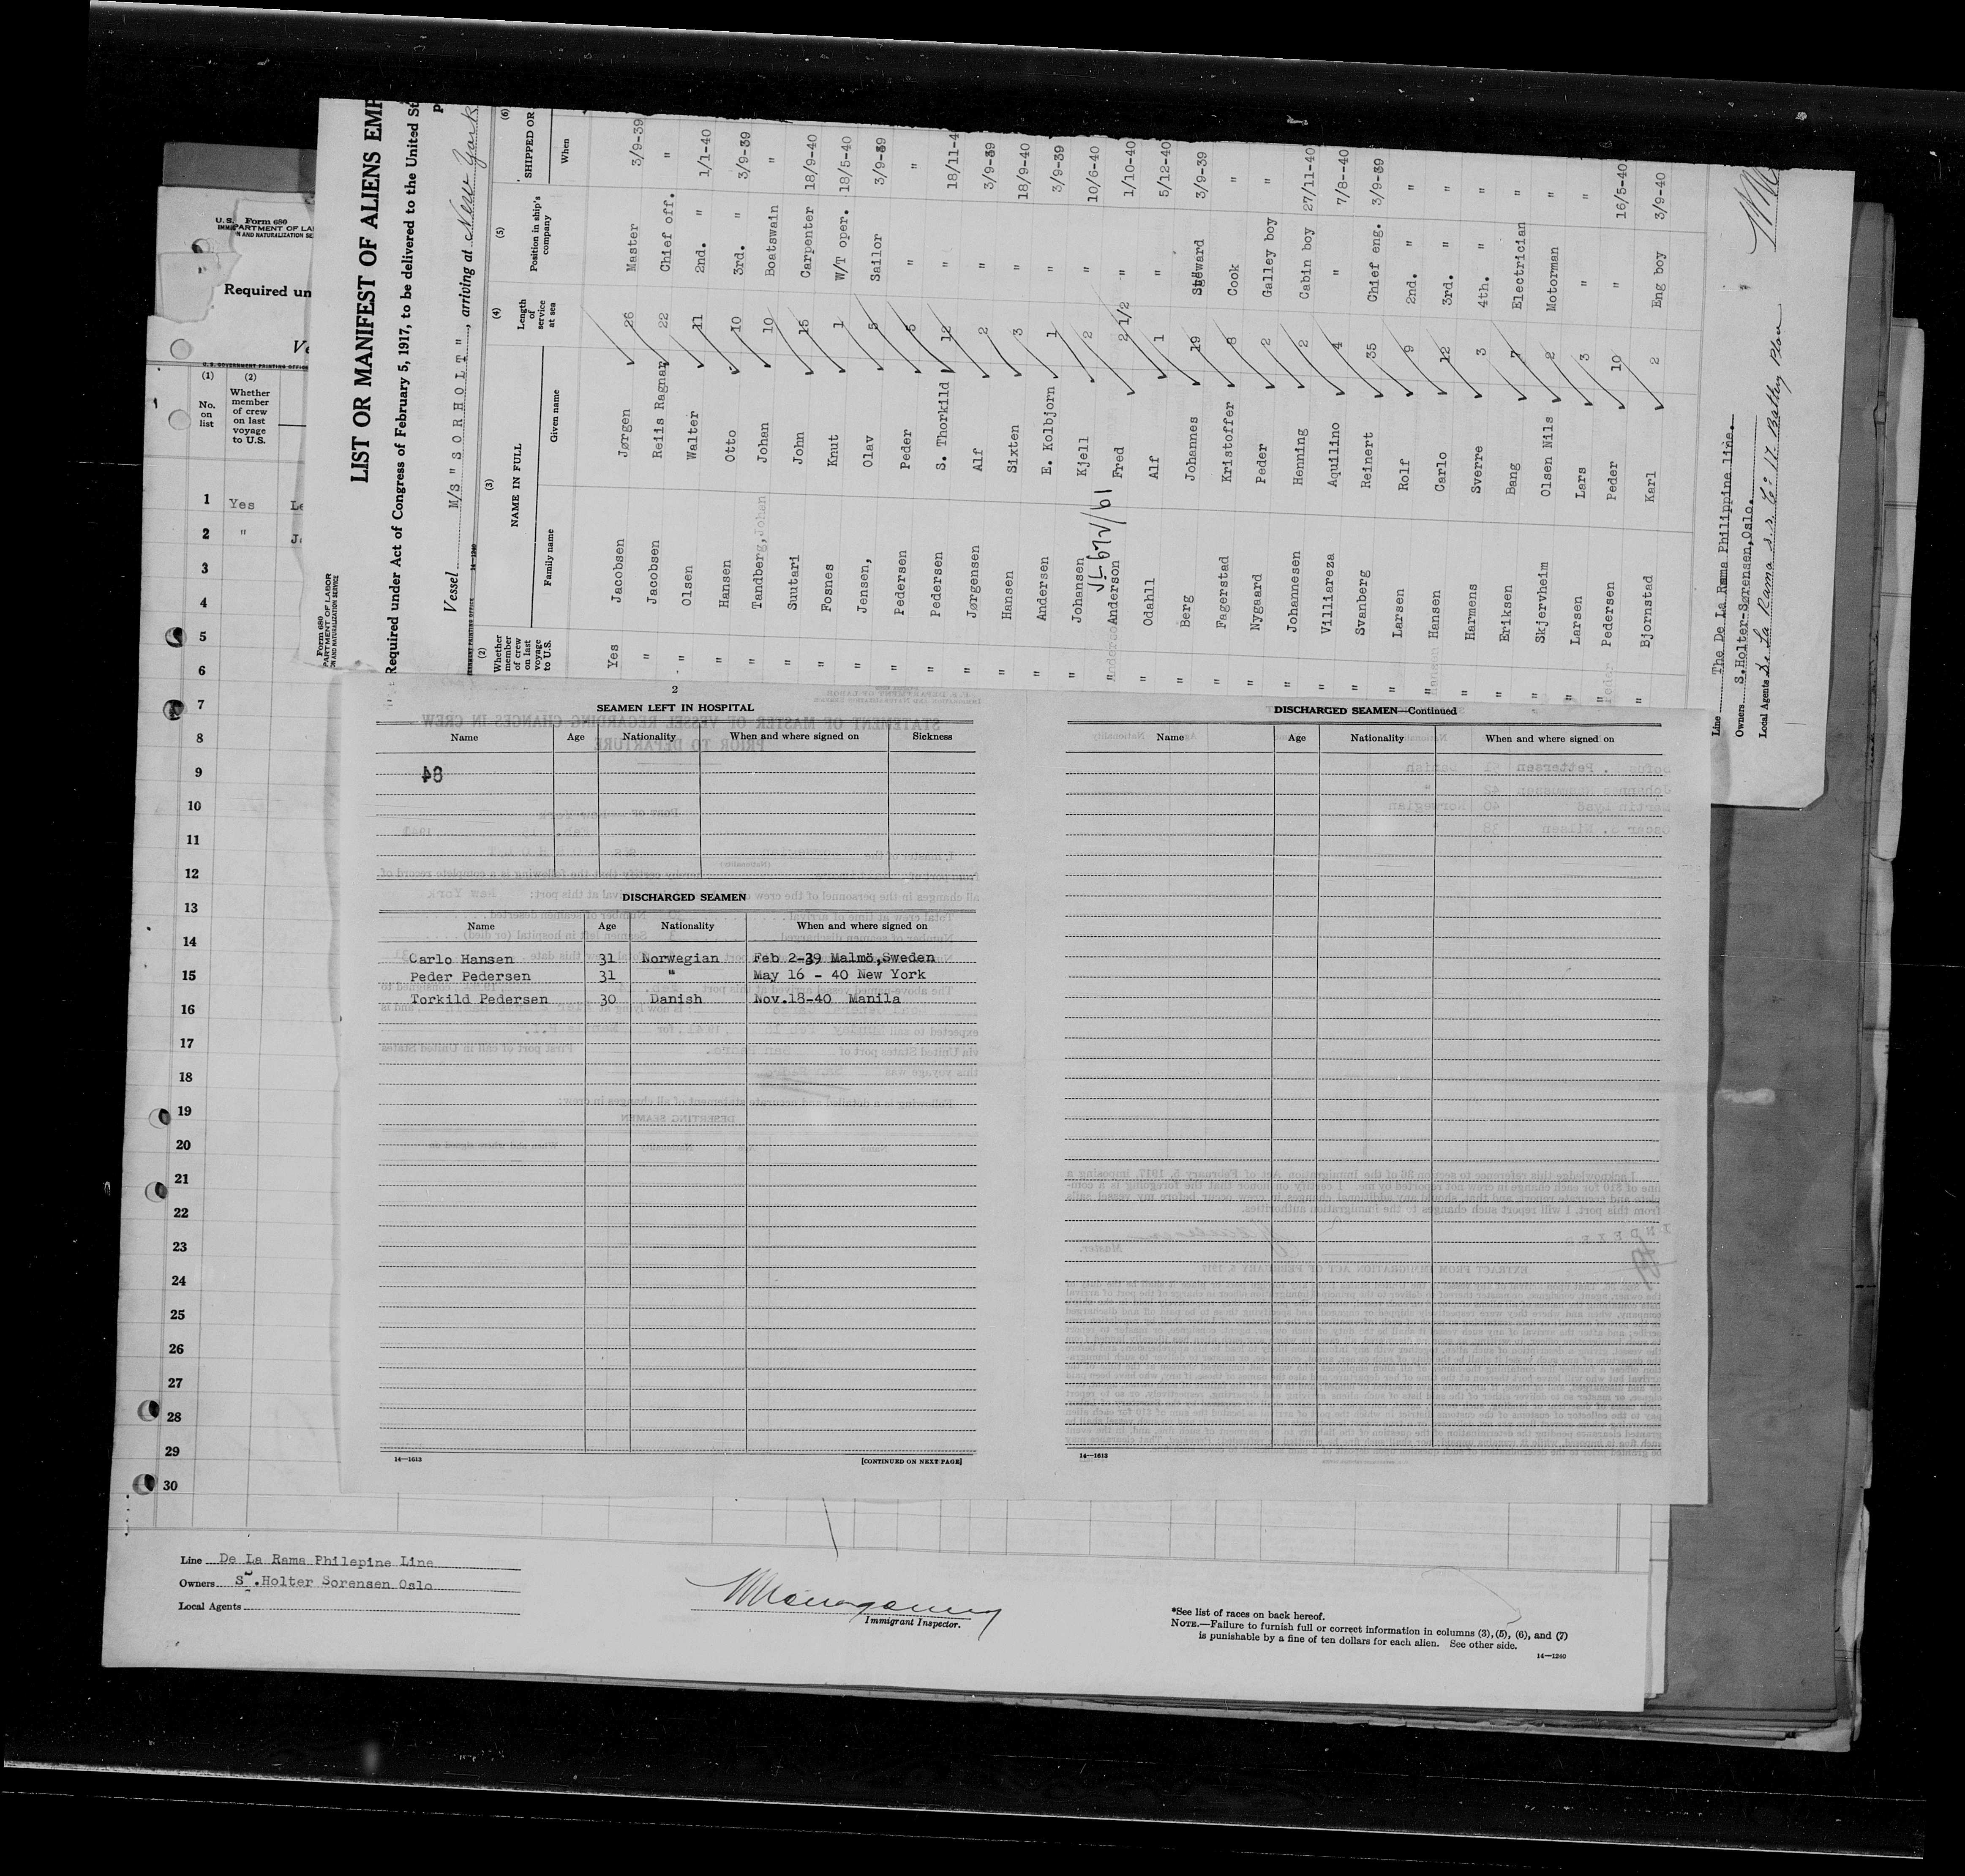 U.S. Form 680
Required un
(1) (2)
No. on list
Whether member of crew on last voyage to U.S.
1 Yes
2 "
3
4
5
6
7
8
9
10
11
12
13
14
15
16
17
18
19
20
21
22
23
24
25
26
27
28
29
30
Line De La Rama Philepine Line
Owners S.Holter Sorensen Oslo
Local Agents
Immigrant Inspector.
*See list of races on back hereof.
NOTE.—Failure to furnish full or correct information in columns (3), (5), (6), and (7)
is punishable by a fine of ten dollars for each alien. See other side.
14—1240
Form 680
LIST OR MANIFEST OF ALIENS EMP
Required under Act of Congress of February 5, 1917, to be delivered to the United St
Vessel M/S "SORHOLT", arriving at New York
(2) (3) (4) (5) (6)
Whether member of crew on last voyage to U.S.
NAME IN FULL
Family name Given name
Length of service at sea
Position in ship's company
SHIPPED OR
When
Yes Jacobsen Jørgen 26 Master 3/9-39
" Jacobsen Reiis Ragnar 22 Chief off. "
" Olsen Walter 11 2nd. " 1/1-40
" Hansen Otto 10 3rd. " 3/9-39
" Tandberg, Johan Johan 10 Boatswain "
" Suutari John 15 Carpenter 18/9-40
" Fosnes Knut 1 W/T oper. 18/5-40
" Jensen, Olav 5 Sailor 3/9-39
" Pedersen Peder 5 " "
" Pedersen S. Thorkild 12 " 18/11-4
" Jørgensen Alf 2 " 3/9-39
" Hansen Sixten 3 " 18/9-40
" Andersen E. Kolbjorn 1 " 3/9-39
" Johansen Kjell 2 " 10/6-40
" Anderson Fred 2 1/2 " 1/10-40
" Odahll Alf 1 " 5/12-40
" Berg Johannes 19 Steward 3/9-39
" Fagerstad Kristoffer 8 Cook "
" Nygaard Peder 2 Galley boy "
" Johannesen Henning 2 Cabin boy 27/11-40
" Villiareza Aquilino 4 " 7/8--40
" Svanberg Reinert 35 Chief eng. 3/9-39
" Larsen Rolf 9 2nd. " "
" Hansen Carlo 12 3rd. " "
" Harmens Sverre 3 4th. " "
" Eriksen Bang 7 Electrician "
" Skjervheim Olsen Nils 2 Motorman "
" Larsen Lars 3 " "
" Pedersen Peder 10 " 16/5-40
" Bjornstad Karl 2 Eng boy 3/9-40
Line The De La Rama Philippine line.
Owners S.Holter-Sørensen, Oslo.
Local Agents De La Rama S.S. Co 17 Battery Place
2
SEAMEN LEFT IN HOSPITAL
Name Age Nationality When and where signed on Sickness
DISCHARGED SEAMEN
Name Age Nationality When and where signed on
Carlo Hansen 31 Norwegian Feb 2-39 Malmö,Sweden
Peder Pedersen 31 " May 16 - 40 New York
Torkild Pedersen 30 Danish Nov.18-40 Manila
14—1613 [CONTINUED ON NEXT PAGE]
DISCHARGED SEAMEN—Continued
Name Age Nationality When and where signed on
14—1613